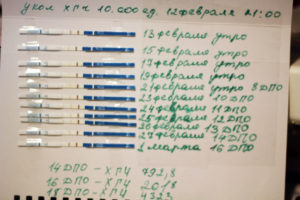 укол ХГЧ 10.000 ед 12 февраля 21:00
13 февраля утро
15 февраля утро
17 февраля утро
19 февраля утро
21 февраля утро 8 ДПО
23 февраля 10 ДПО
24 февраля 11 ДПО
25 февраля 12 ДПО
26 февраля 13 ДПО
27 февраля 14 ДПО
1 марта 16 ДПО
14 ДПО - ХГЧ 792,8
16 ДПО - ХГЧ 2018
18 ДПО - ХГЧ 4323